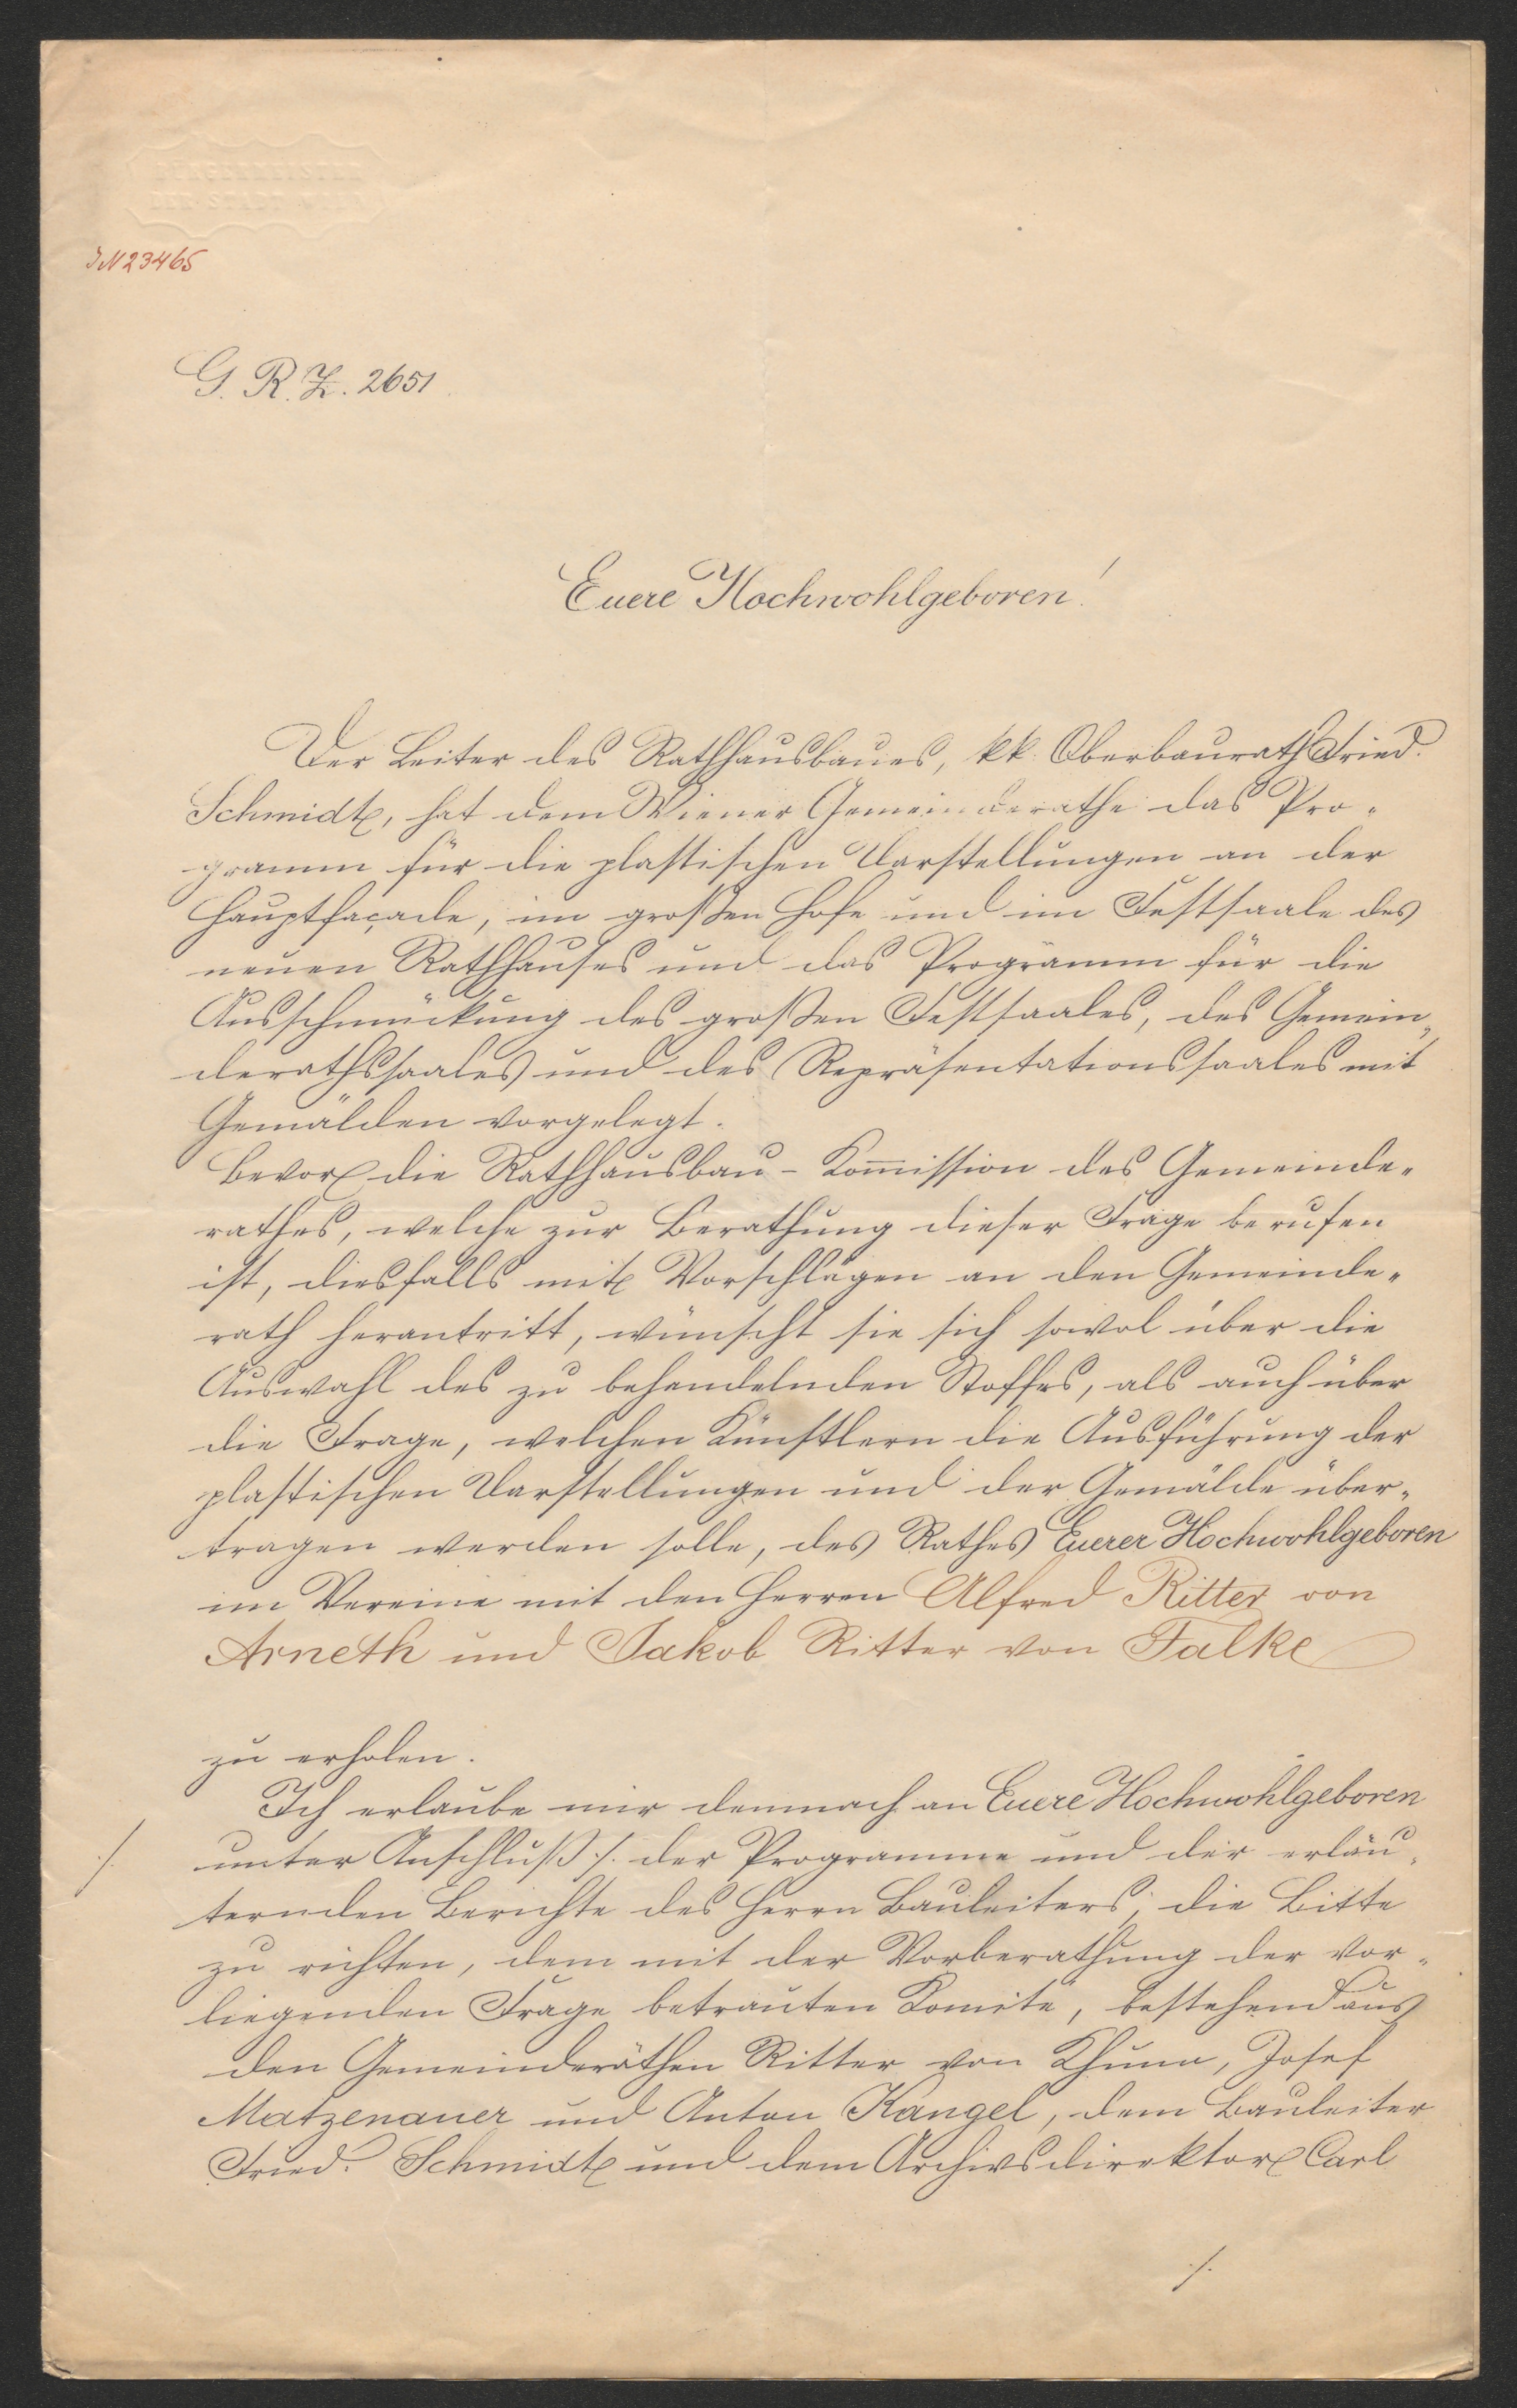 IN 23465
G. R. Z. 2651.
Euere Hochwohlgeboren!
Der Leiter des Rathhausbaues, kk. Oberbaurath Fried.
Schmidt, hat dem Wiener Gemeinderathe das Pro-
gramm für die plastischen Darstellungen an der
Hauptfaçade, im großen Hofe und im Festsaale des
neuen Rathhauses und das Programm für die
Ausschmückung des großen Festsaales, des Gemein-
derathssaales und des Repräsentationssaales mit
Gemälden vorgelegt.
Bevor die Rathhausbau-Kom̄ission des Gemeinde-
rathes, welche zur Berathung dieser Frage berufen
ist, diesfalls mit Vorschlägen an den Gemeinde-
rath herantritt, wünscht sie sich sowol über die
Auswahl des zu behandelnden Stoffes, als auch über
die Frage, welchen Künstlern die Ausführung der
plastischen Darstellungen und der Gemälde über-
tragen werden solle, des Rathes Euerer Hochwohlgeboren
im Vereine mit den Herren Alfred Ritter von
Arneth und Jakob Ritter von Falke
zu erholen.
Ich erlaube mir demnach an Euere Hochwohlgeboren
./. unter Anschluß ./. der Programme und der erläu-
ternden Berichte des Herrn Bauleiters, die Bitte
zu richten, dem mit der Vorberathung der vor-
liegenden Frage betrauten Comité, bestehend aus
den Gemeinderäthen Ritter von Khunn, Josef
Matzenauer und Anton Kangel, dem Bauleiter
Fried. Schmidt und dem Archivsdirektor Carl
./.